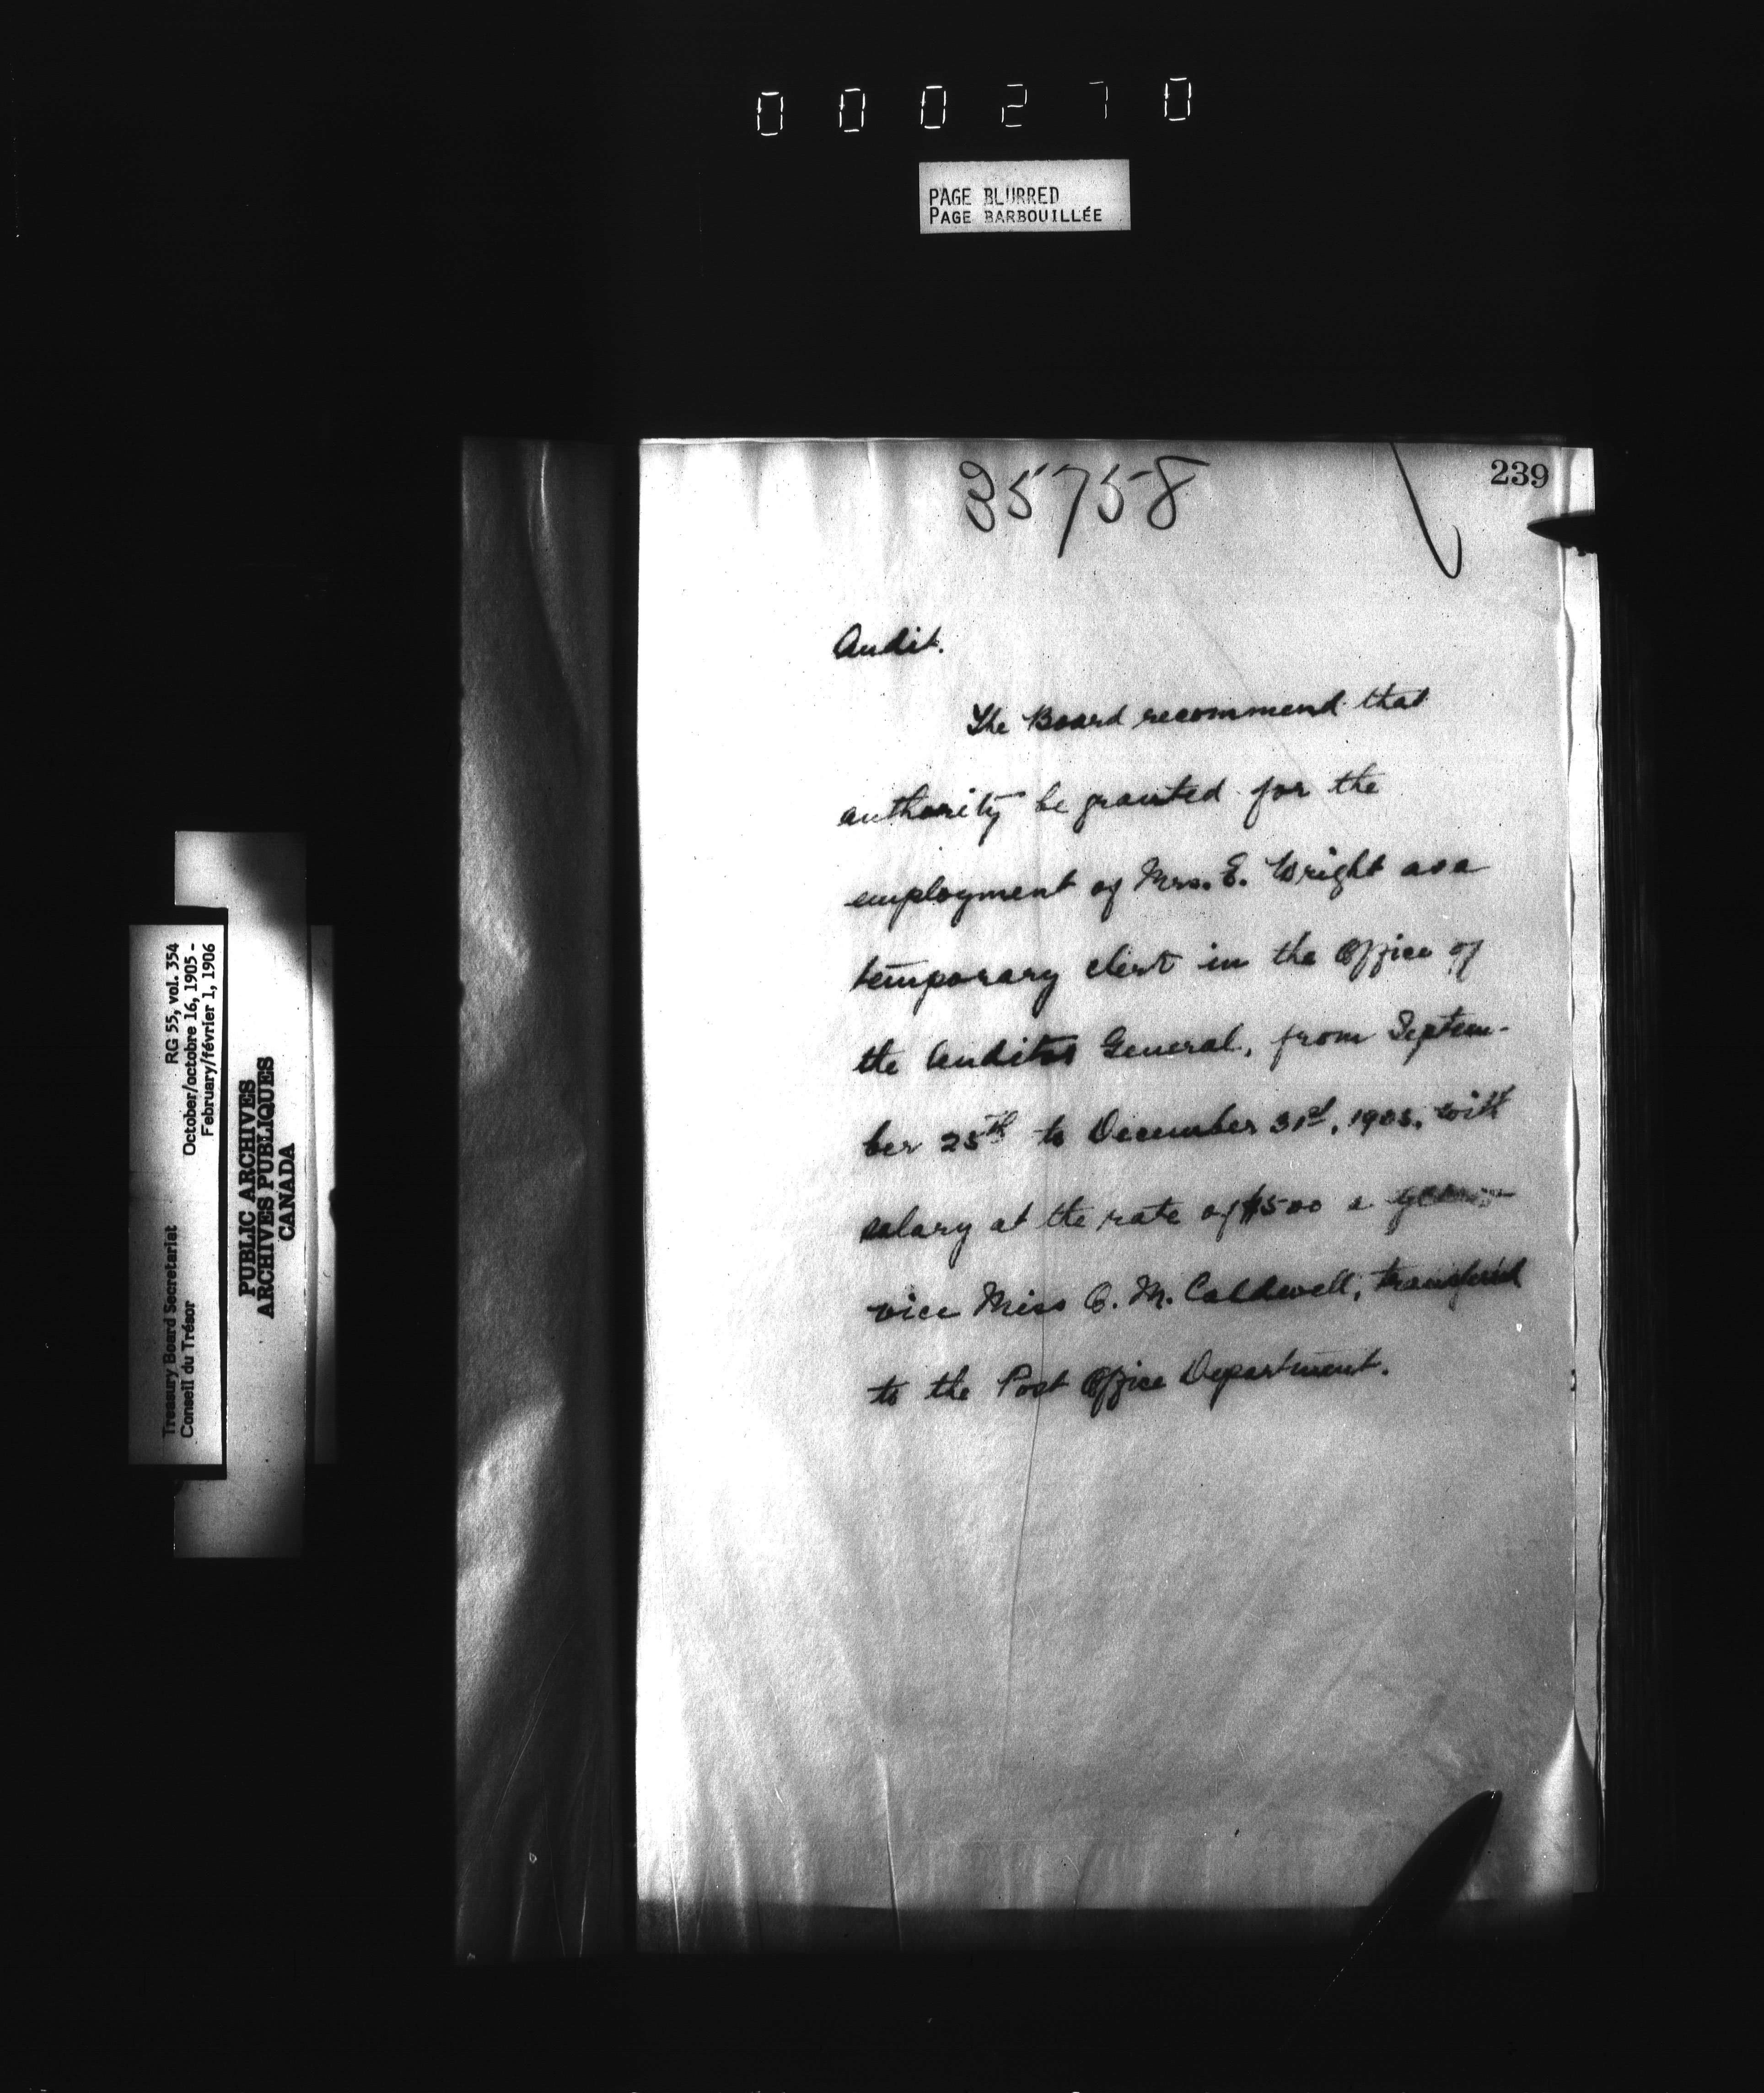 000270
PAGE BLURRED
PAGE BARBOUILLÉE
239
35758
Audit.
The Board recommend that
authority be granted for the
employment of Mrs. E. Wright as a
temporary clerk in the Office of
the Auditor General, from Septem-
ber 25th to December 31st, 1905, with
salary at the rate of $500 a year
vice Miss C. M. Caldwell, transferred
to the Post Office Department.
Treasury Board Secretariat RG 55, vol. 354
Conseil du Trésor October/octobre 16, 1905 -
February/février 1, 1906
PUBLIC ARCHIVES
ARCHIVES PUBLIQUES
CANADA